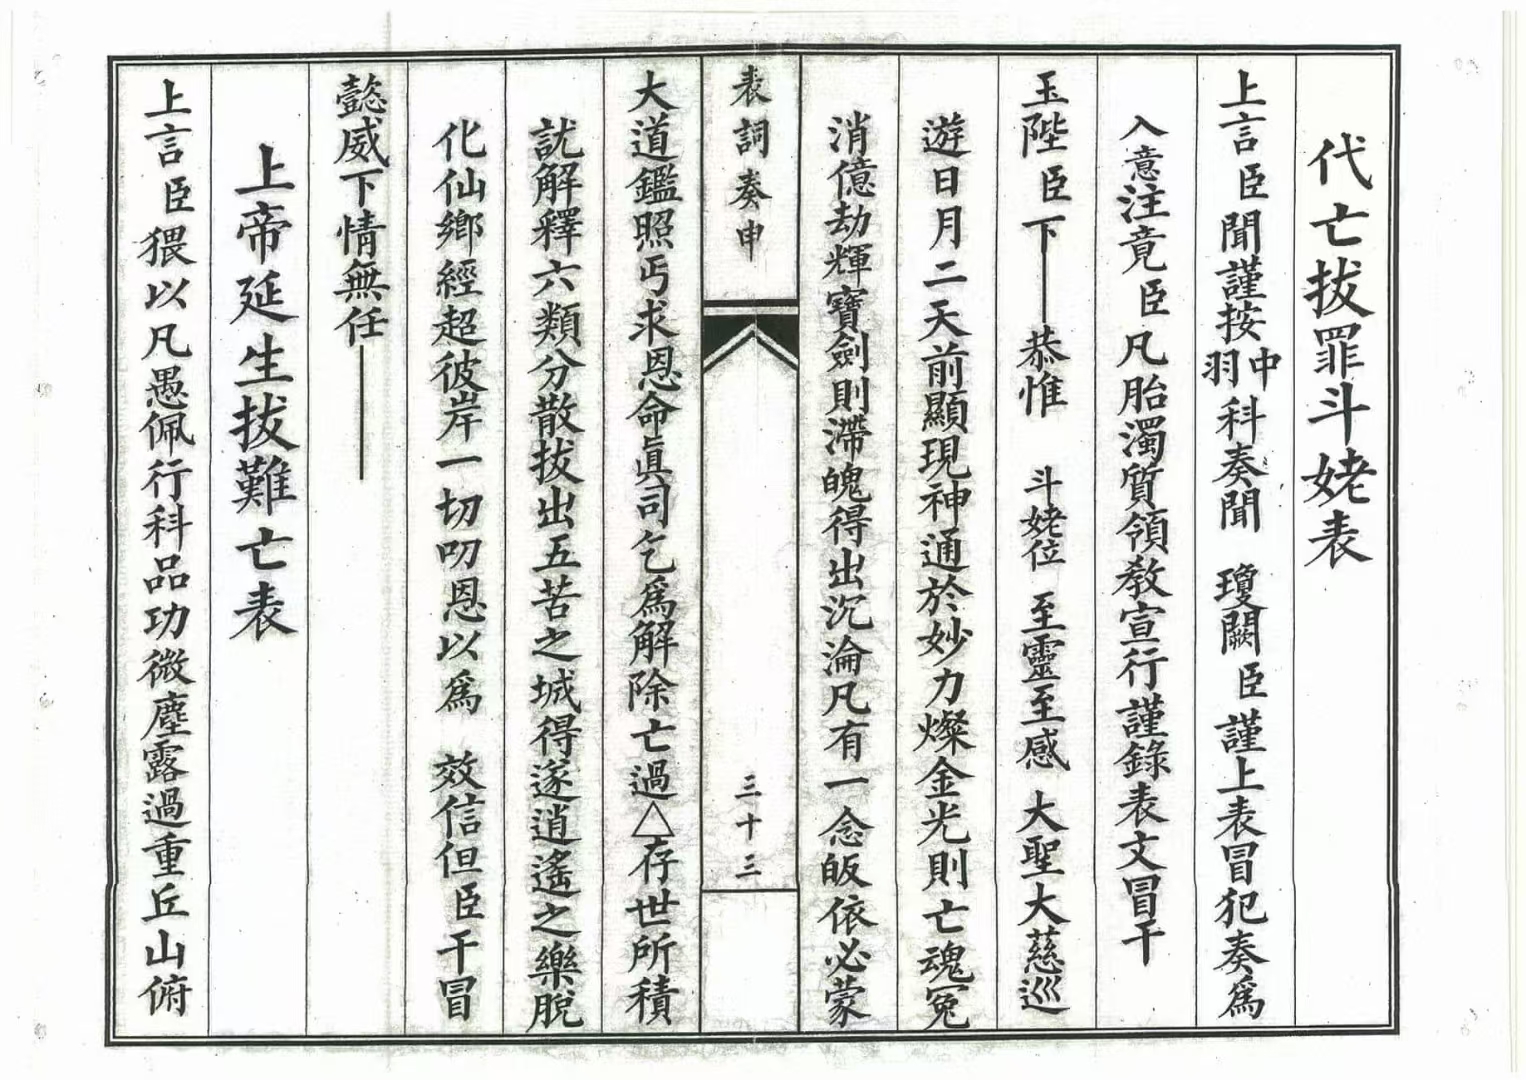 代亡拔罪斗姥表
上言臣聞謹按中羽科奏聞 瓊闕臣謹上表冒犯奏爲
入意注竟臣凡胎濁質領教宣行謹錄表文冒干
玉陛臣下——恭惟 斗姥位 至靈至感 大聖大慈巡
遊日月二天前顯現神通於妙力燦金光則亡魂冤
消億劫輝寶劍則滯魄得出沉淪凡有一念皈依必蒙
表詞奏申 三十三
大道鑑照丐求恩命眞司乞爲解除亡過△存世所積
訧解釋六類分散拔出五苦之城得遂逍遙之樂脫
化仙鄉經超彼岸一切叨恩以爲 效信但臣干冒
懿威下情無任——
上帝延生拔難亡表
上言臣猥以凡愚佩行科品功微塵露過重丘山俯